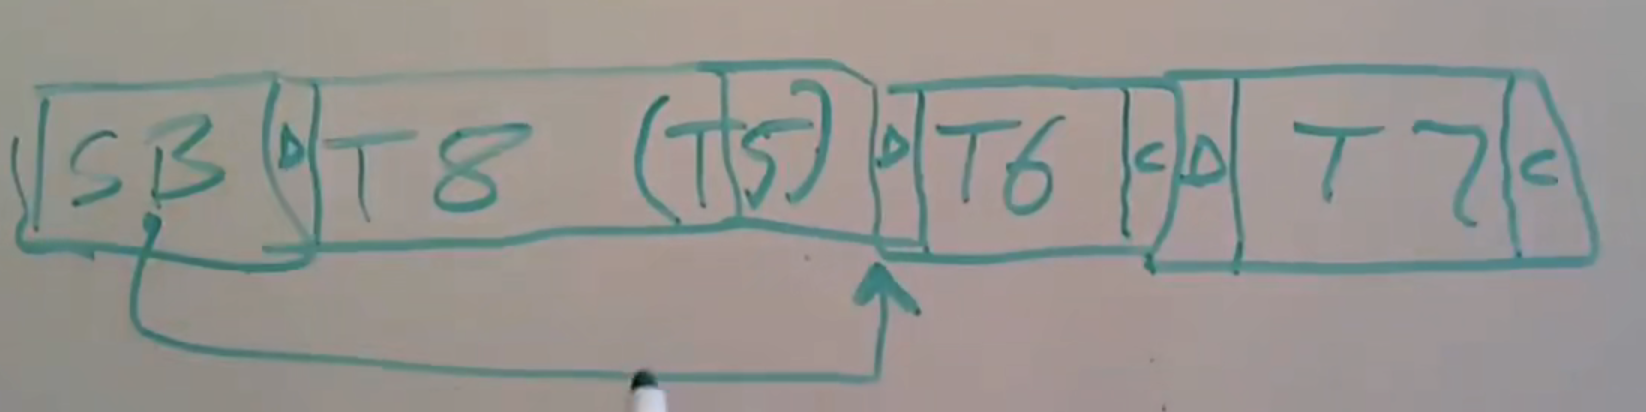 SB D T8 (T5) D T6 C D T7 C